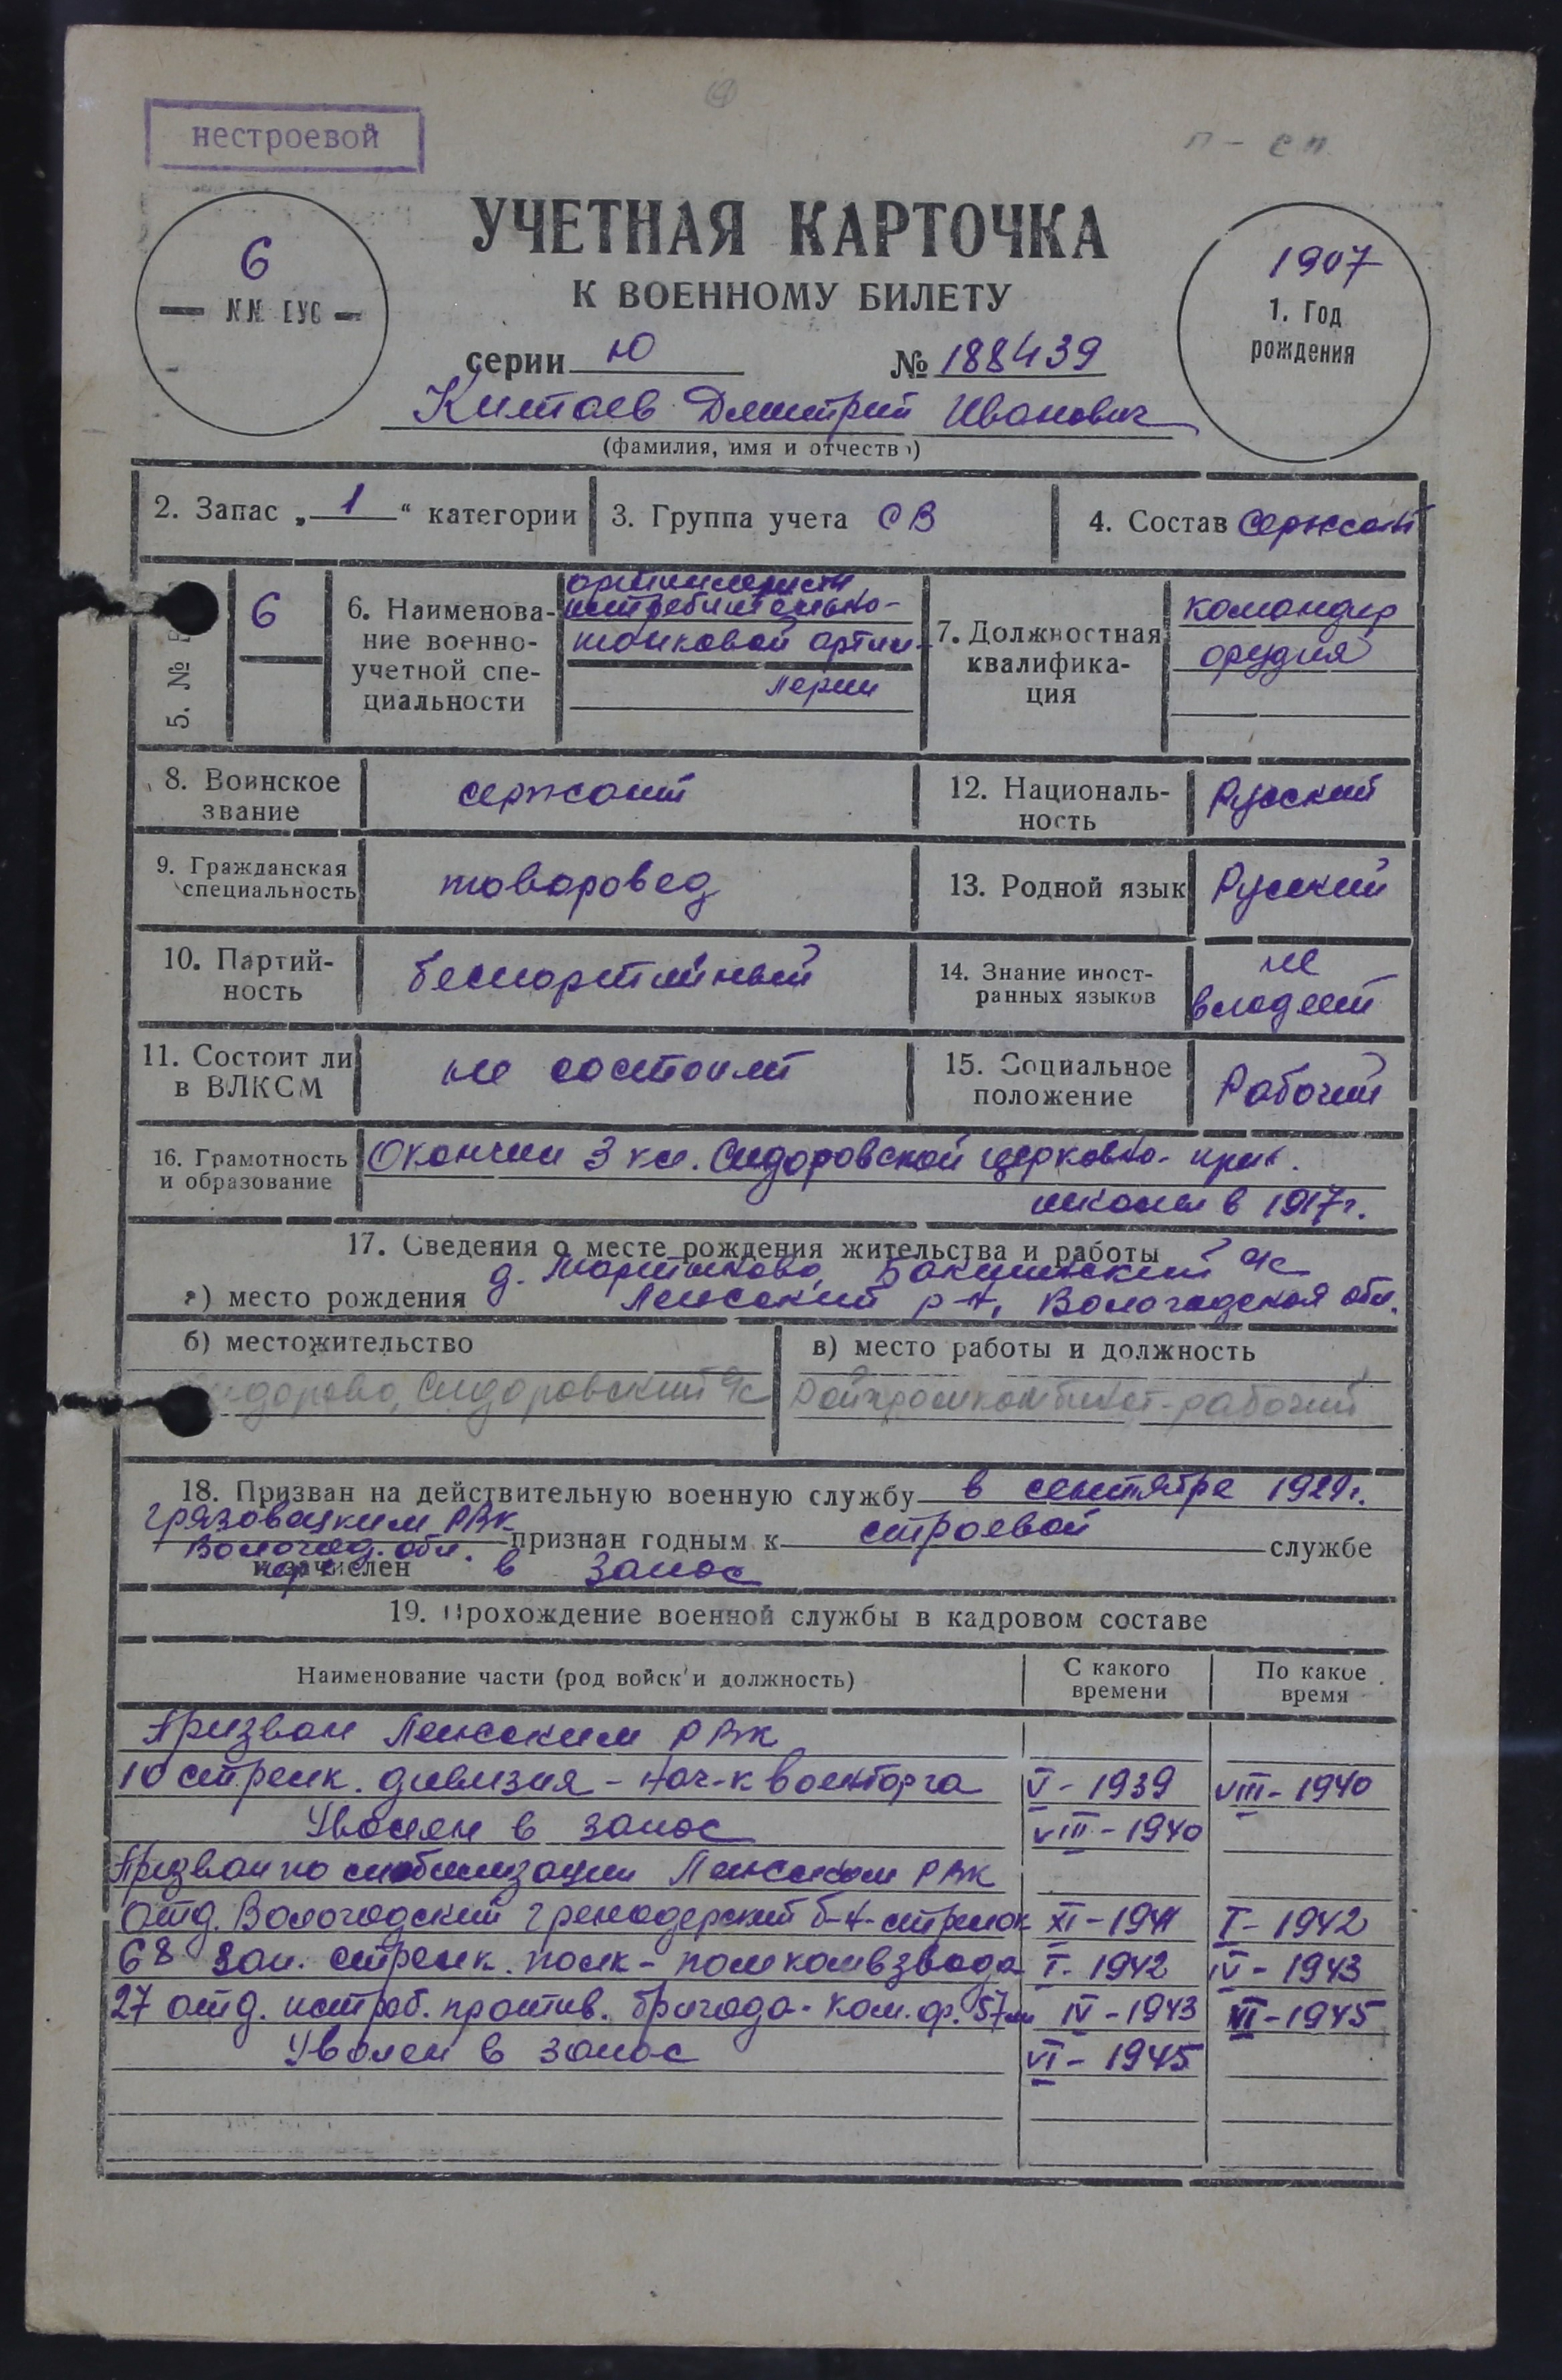 нестроевой
п - сп
УЧЕТНАЯ КАРТОЧКА
К ВОЕННОМУ БИЛЕТУ
6
N.N. ВУС
1907
1. Год
рождения
серии Ю № 188439
Китаев Дмитрий Иванович
(фамилия, имя и отчество)
2. Запас „ 1 “ категории
3. Группа учета СВ
4. Состав Сержант
5. №
6
6. Наименова-
ние военно-
учетной спе-
циальности
артиллеристы
истребительно-
танковой артил-
лерии
7. Должностная
квалифика-
ция
командир
орудия
8. Воинское
звание
сержант
12. Националь-
ность
Русский
9. Гражданская
специальность
товаровед
13. Родной язык
Русский
10. Партий-
ность
беспартийный
14. Знание иност-
ранных языков
не
владеет
11. Состоит ли
в ВЛКСМ
не состоит
15. Социальное
положение
Рабочий
16. Грамотность
и образование
Окончил 3 кл. Сидоровской церковно- прих.
школы в 1917г.
17. Сведения о месте рождения жительства и работы
а) место рождения
д. Бакшинский с/с
р-н, Вологодская обл.
б) местожительство
Сидорово, Сидоровский с/с
в) место работы и должность
Райпромкомбинат-рабочий
18. Призван на действительную военную службу в сентябре 1929г.
Грязовецким РВК
Вологод. обл. признан годным к строевой службе
и зачислен в запас
19. Прохождение военной службы в кадровом составе
Наименование части (род войск и должность)
С какого
времени
По какое
время
Призван РВК
10 стрелк. дивизия - нач-к военторга V - 1939 VIII - 1940
Уволен в запас VIII - 1940
Призван по мобилизации РВК
Отд. Вологодский гренадерский б-н-стрелок XI - 1941 I - 1942
68 зап. стрелк. полк - помкомвзвода I - 1942 IV - 1943
27 отд. истреб. против. бригада- ком. ор. 57мм IV - 1943 VI - 1945
Уволен в запас VI - 1945